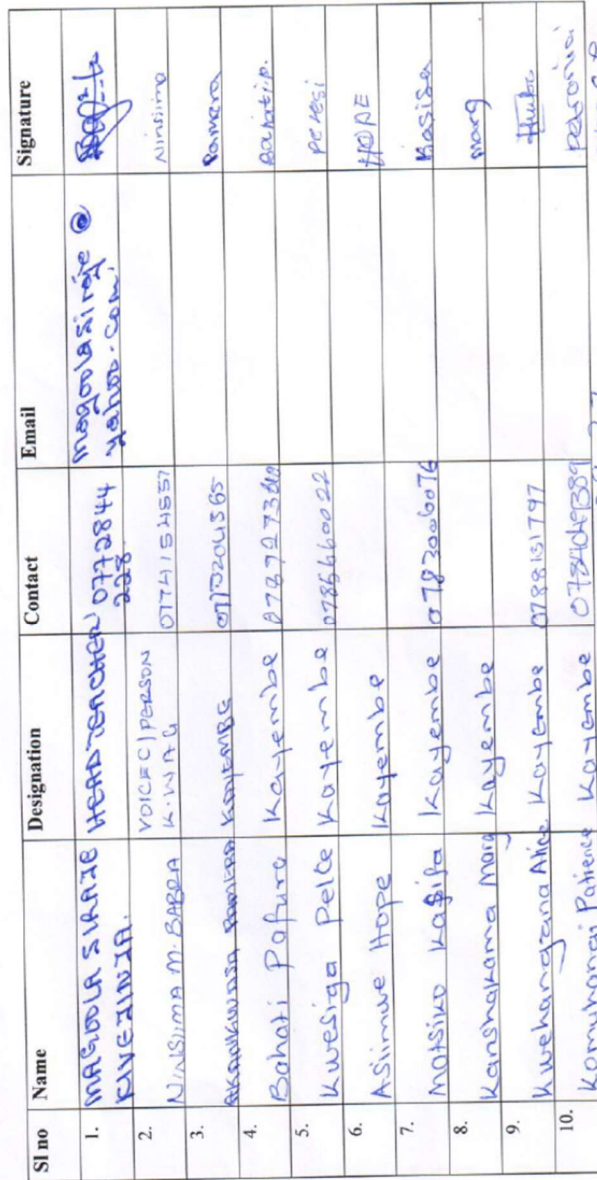 Sl no Name Designation Contact Email Signature
1. MAGOOLA SIRAJE HEAD TEACHER 0772844 magoolasiraje @
KIVEJINJA. 228 yahoo.com
2. NINSIIMA M. BABRA VOICE C/PERSON 0774115455 Ninsiima
K.WAG
3. AKANKWASA PAMERA KAYEMBE Pamera
4. Bahati Pofuro Kayembe Bahati.p.
5. Kwesiga Pelce Kayembe 0785660022 peresi
6. Asiimwe Hope Kayembe HOPE
7. Matsiko Kasifa Kayembe 0783006076 Kasisa
8. Kanshakama Mary Kayembe mary
9. Kwehangana Alice Kayembe 0788131797
10. Komuhangi Patience Kayembe